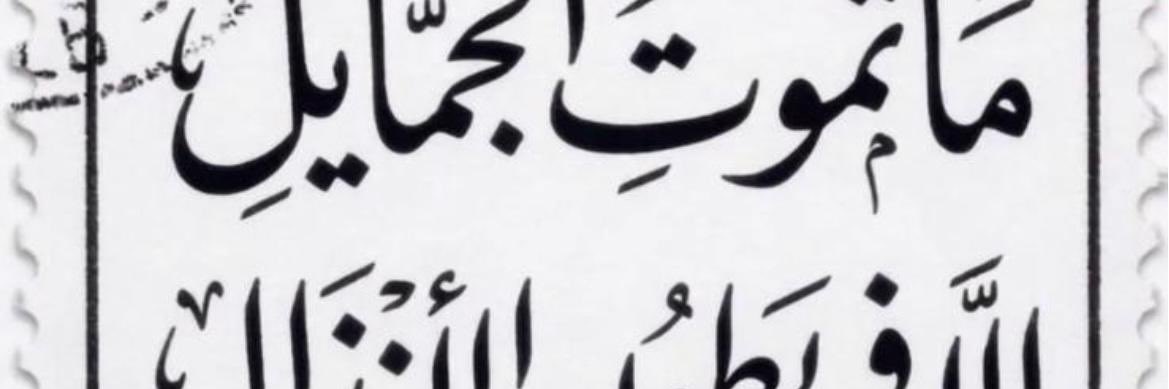 مَا تموتِ الجمّايلِ
الَّا في بَطُون الأنْذَال